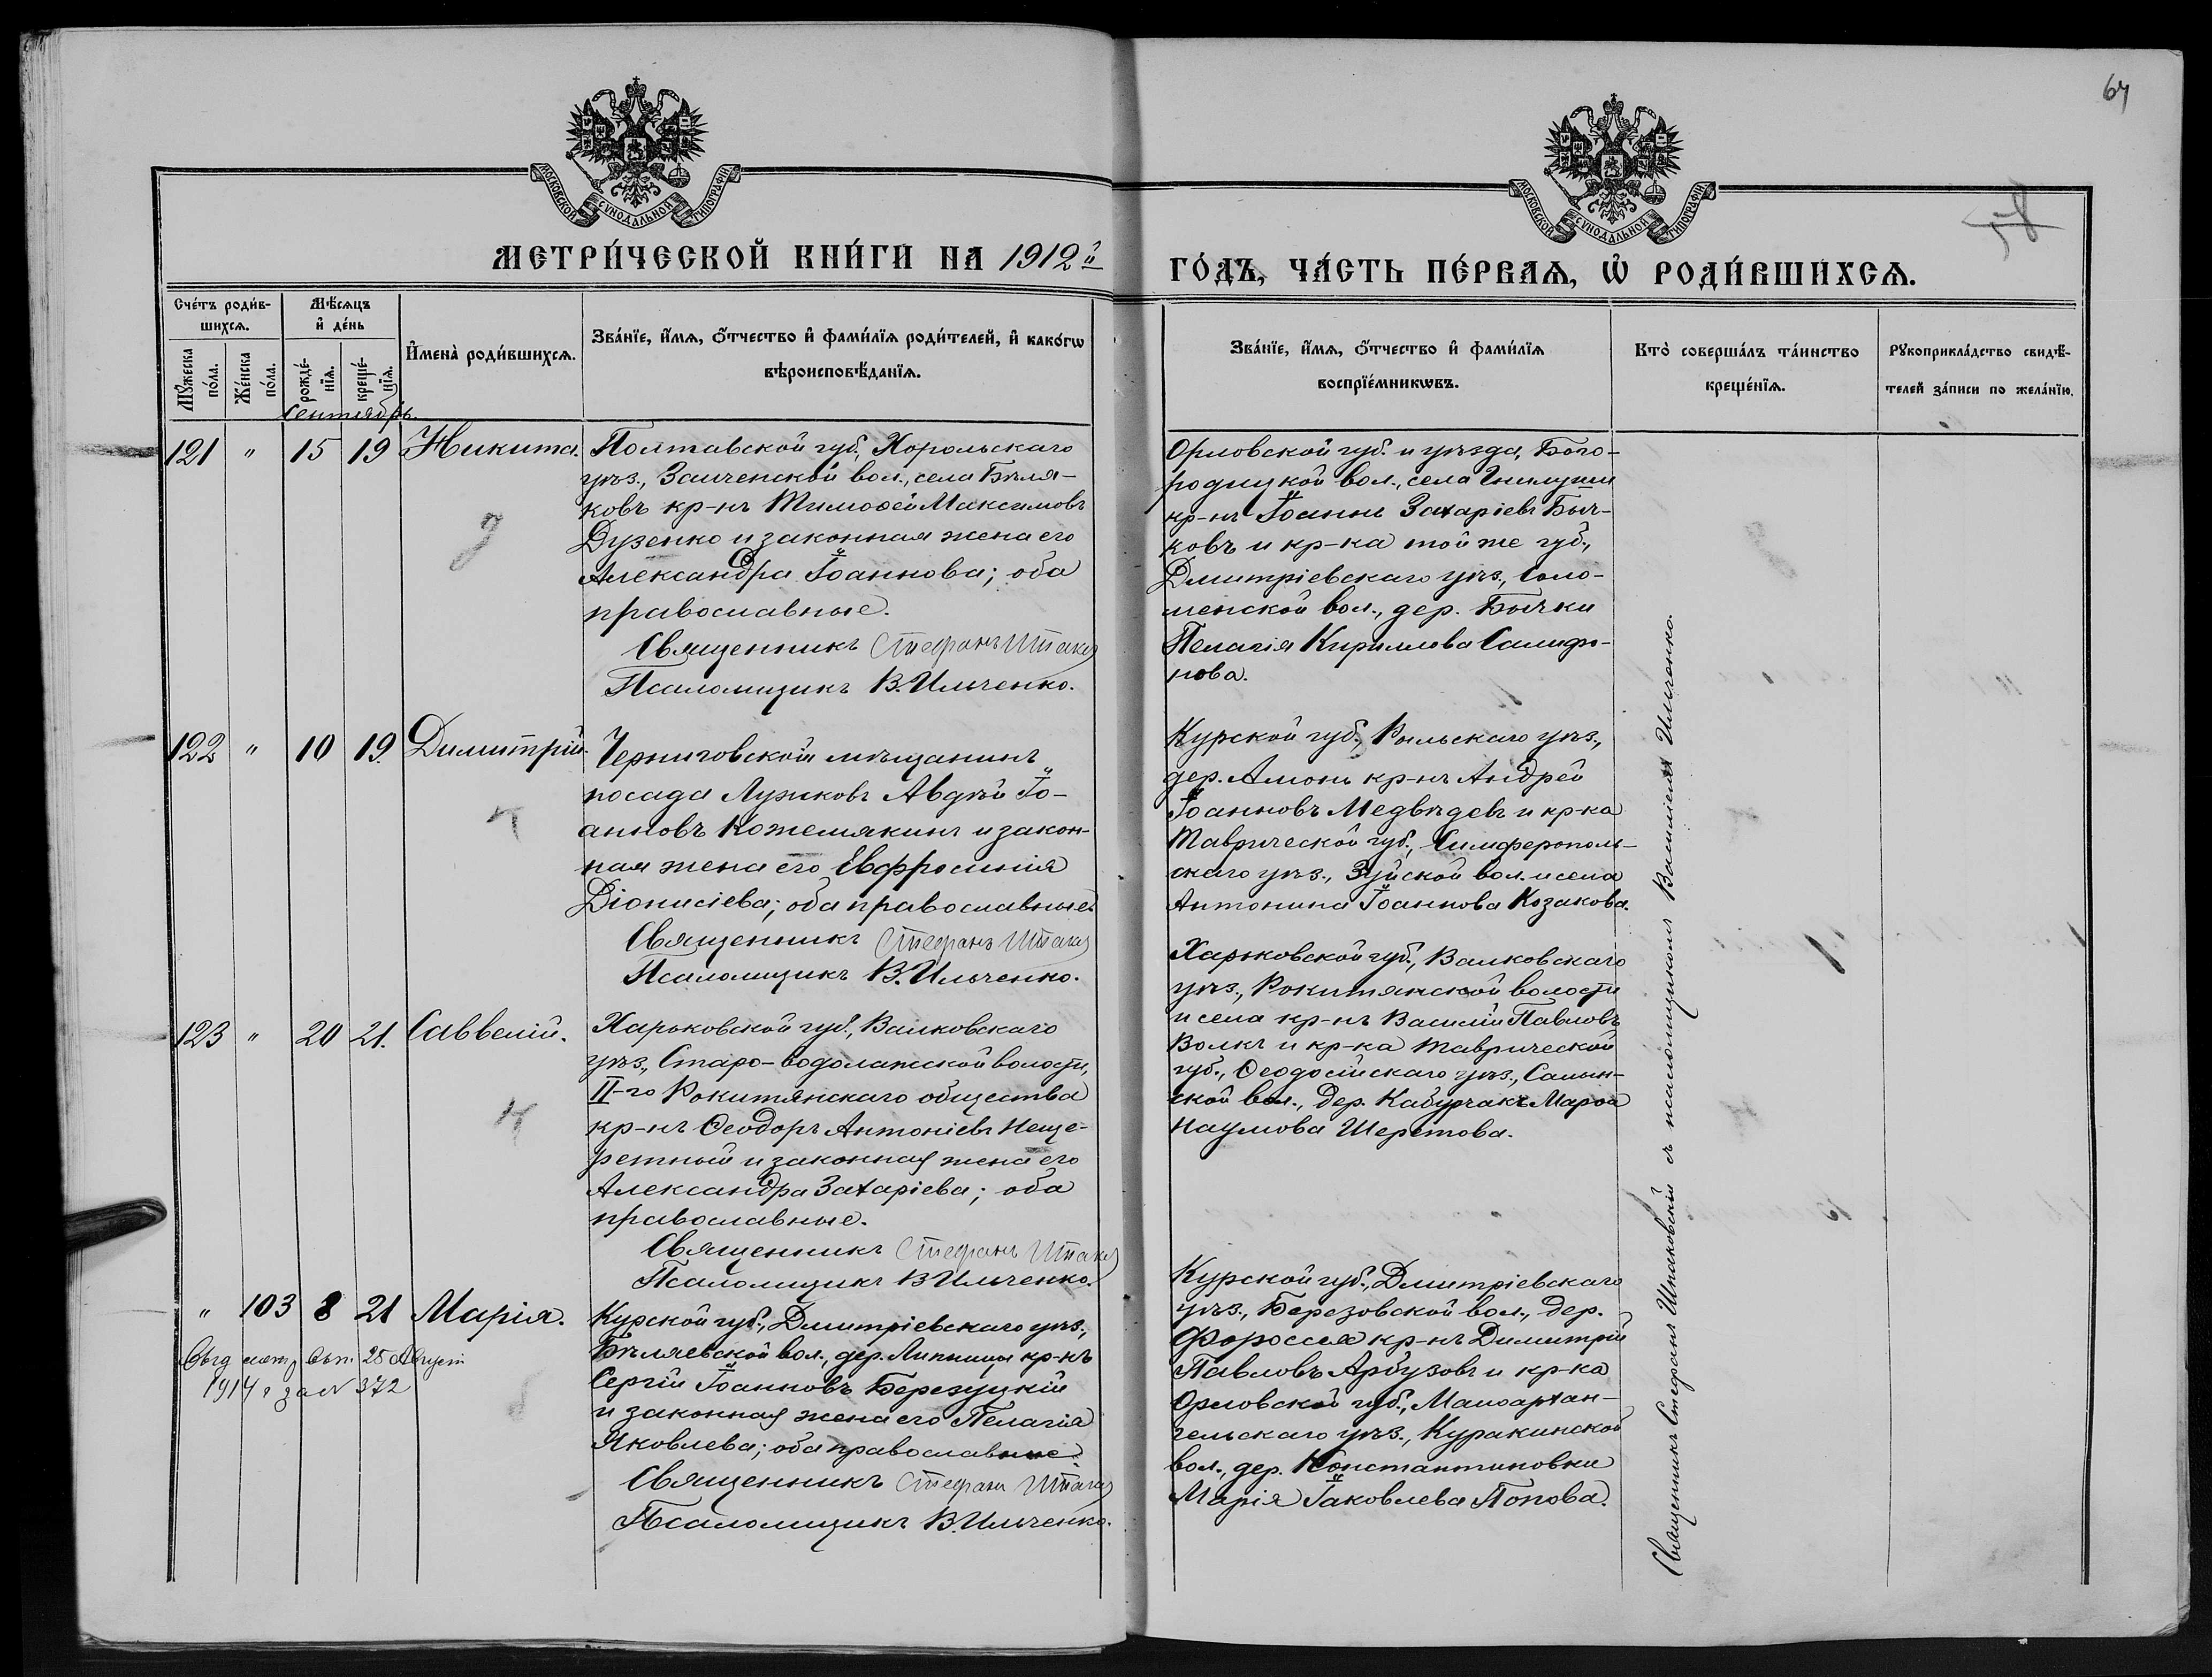 67
58
МОСКОВСКОЙ СѴНОДАЛЬНОЙ ТИПОГРАФІИ
МОСКОВСКОЙ СѴНОДАЛЬНОЙ ТИПОГРАФІИ
МЕТРИ́ЧЕСКОЙ КНИ́ГИ НА 1912й
ГО́ДЪ, ЧА́СТЬ ПЕ́РВАѦ, Ѡ҆ РОДИ́ВШИХСѦ.
Сче́тъ роди́в-
шихсѧ.
Мꙋ́жеска
по́ла.
Же́нска
по́ла.
Мѣ́сѧцъ
и҆ де́нь
рожде́-
нїѧ.
креще́-
нїѧ.
И҆мена̀ роди́вшихсѧ.
Зва́нїе, и҆́мѧ, ѻ҆́тчество и҆ фами́лїѧ роди́телей, и҆ како́гѡ
вѣроисповѣ́данїѧ.
Зва́нїе, и҆́мѧ, ѻ҆́тчество и҆ фами́лїѧ
воспрїе́мникѡвъ.
Кто̀ соверша́лъ та́инство
креще́нїѧ.
Рꙋкоприкла́дство свидѣ́-
телей за́писи по жела́нїю.
Сентябрь.
121 " 15 19 Никита.
Полтавской губ., Хорольскаго
уѣз., Заиченской вол., села Бѣля-
ковъ кр-нъ Тимоѳей Максимовъ
Дузенко и законная жена его
Александра Іоаннова; оба
православные.
Священникъ Стефанъ
Псаломщикъ В. Ильченко.
Орловской губ. и уѣзда, Бого-
родицкой вол., села Гнилуши
кр-нъ Іоаннъ Захаріевъ Быч-
ковъ и кр-ка той же губ.,
Дмитріевскаго уѣз., Соло-
менской вол., дер. Бычки
Пелагія Кириллова Салифо-
нова.
122 " 10 19. Димитрій.
Черниговской мѣщанинъ
посада Лужковъ Авдѣй Іо-
анновъ Кожемякинъ и закон-
ная жена его Евфросинія
Діонисіева; оба православные.
Священникъ Стефанъ
Псаломщикъ В. Ильченко.
Курской губ., Рыльскаго уѣз.,
дер. Амонь кр-нъ Андрей
Іоанновъ Медвѣдевъ и кр-ка
Таврической губ., Симферополь-
скаго уѣз., Зуйской вол. и села
Антонина Іоаннова Козакова.
123 " 20 21. Саввелій.
Харьковской губ., Валковскаго
уѣз., Старо-водолажской волости,
II-го Рокитянскаго общества
кр-нъ Ѳеодоръ Антоніевъ Неще-
ретный и законная жена его
Александра Захаріева; оба
православные.
Священникъ Стефанъ
Псаломщикъ В Ильченко.
Харьковской губ., Валковскаго
уѣз., Рокитянской волости
и села кр-нъ Василій Павловъ
Волкъ и кр-ка Таврической
губ., Ѳеодосійскаго уѣз., Салын-
ской вол., дер. Кабурчакъ Марѳа
Наумова Шеретова.
" 103 8 21 Марія.
25 Август
1914 г за № 372
Курской губ., Дмитріевскаго уѣз.,
Бѣляевской вол., дер. Липницы кр-нъ
Сергій Іоанновъ Березуцкій
и законная жена его Пелагія
Яковлева; оба православные.
Священникъ Стефанъ
Псаломщикъ В. Ильченко.
Курской губ., Дмитріевскаго
уѣз., Березовской вол., дер.
Фороссея кр-нъ Димитрій
Павловъ Арбузовъ и кр-ка
Орловской губ., Малоархан-
гельскаго уѣз., Куракинской
вол., дер. Константиновки
Марія Іаковлева Попова.
Священникъ Стефанъ Штаковскій съ псаломщикомъ Василіемъ Ильченко.